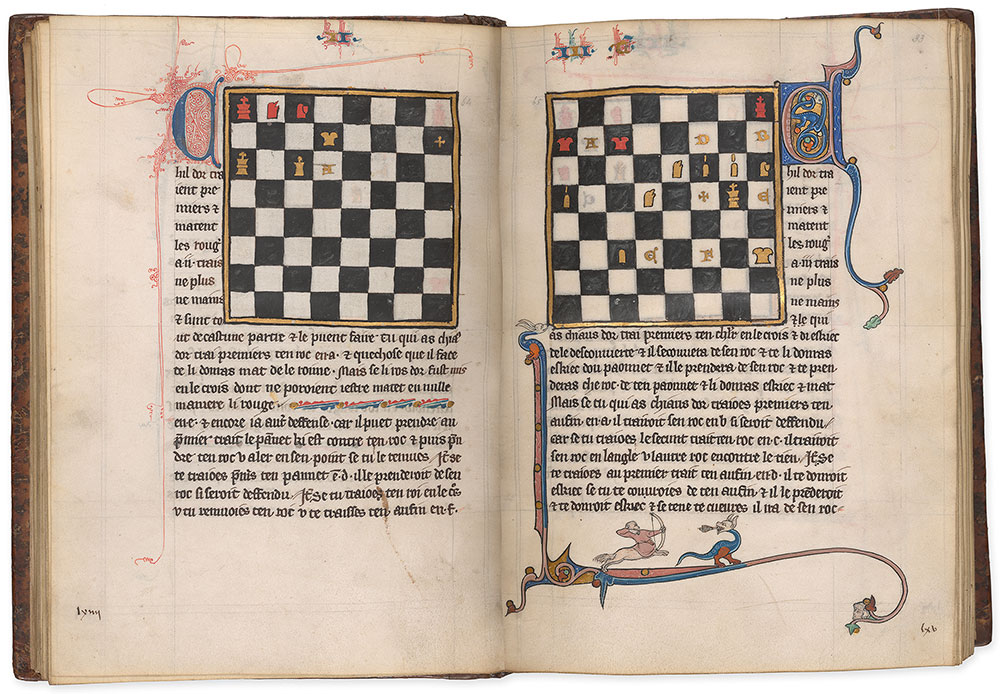 64
C
hil dor tra
ient pre
miers ⁊
matent
les roug̃
a .ii. trais
ne plus
ne mains
⁊ sunt to
ut de partie ⁊ le puent faire Tu qui as
dor trai premiers ten roc en .a. ⁊ quechose que il face
te li donras mat de le Mais se li rois dor fust mis
en le crois dont ne poroient iestre matet en nulle
maniere li rouge.
en .e. ⁊ encore ia deffense. car il puet prendre au
trait le ki est contre ten roc ⁊ puis
ten roc v aler en sen point se tu le remues. se
te traioies ten pannet .e.d. il le prenderoit de sen
roc si seroit deffendu. se tu traioies ten roi en le
v tu remuoies ten roc v te traisses ten aufin en .f.
lxiiii
65
33
C
A D B
D ✝ E
C F
hil dor tra
ient pre
miers ⁊
matent
les roug̃
a .iii. trais
ne plus
ne mains
⁊ le qui
as chiaus dor trai premiers ten en le crois ⁊ di eskiec
de le descouuerte ⁊ il se couuera de sen roc ⁊ te li donras
eskiec dou paonnet ⁊ il le prendera de sen roc ⁊ te pren
deras che roc de ten paonnet ⁊ li donras eskiec ⁊ mat
Mais se tu qui as chiaus dor traioies premiers ten
aufin en .a. il trairoit sen roc en .b. si seroit deffendu.
car se tu traioies le secunt trait ten roc en .c. il trairoit
sen roc en langle v lautre roc encontre le tien. se
te traioies au premier trait ten aufin en .d. il te donroit
eskiec se tu te couuroies de ten aufin ⁊ il le prenderoit
⁊ te donroit eskiec ⁊ se tene te cueures il ira de sen roc
lxv